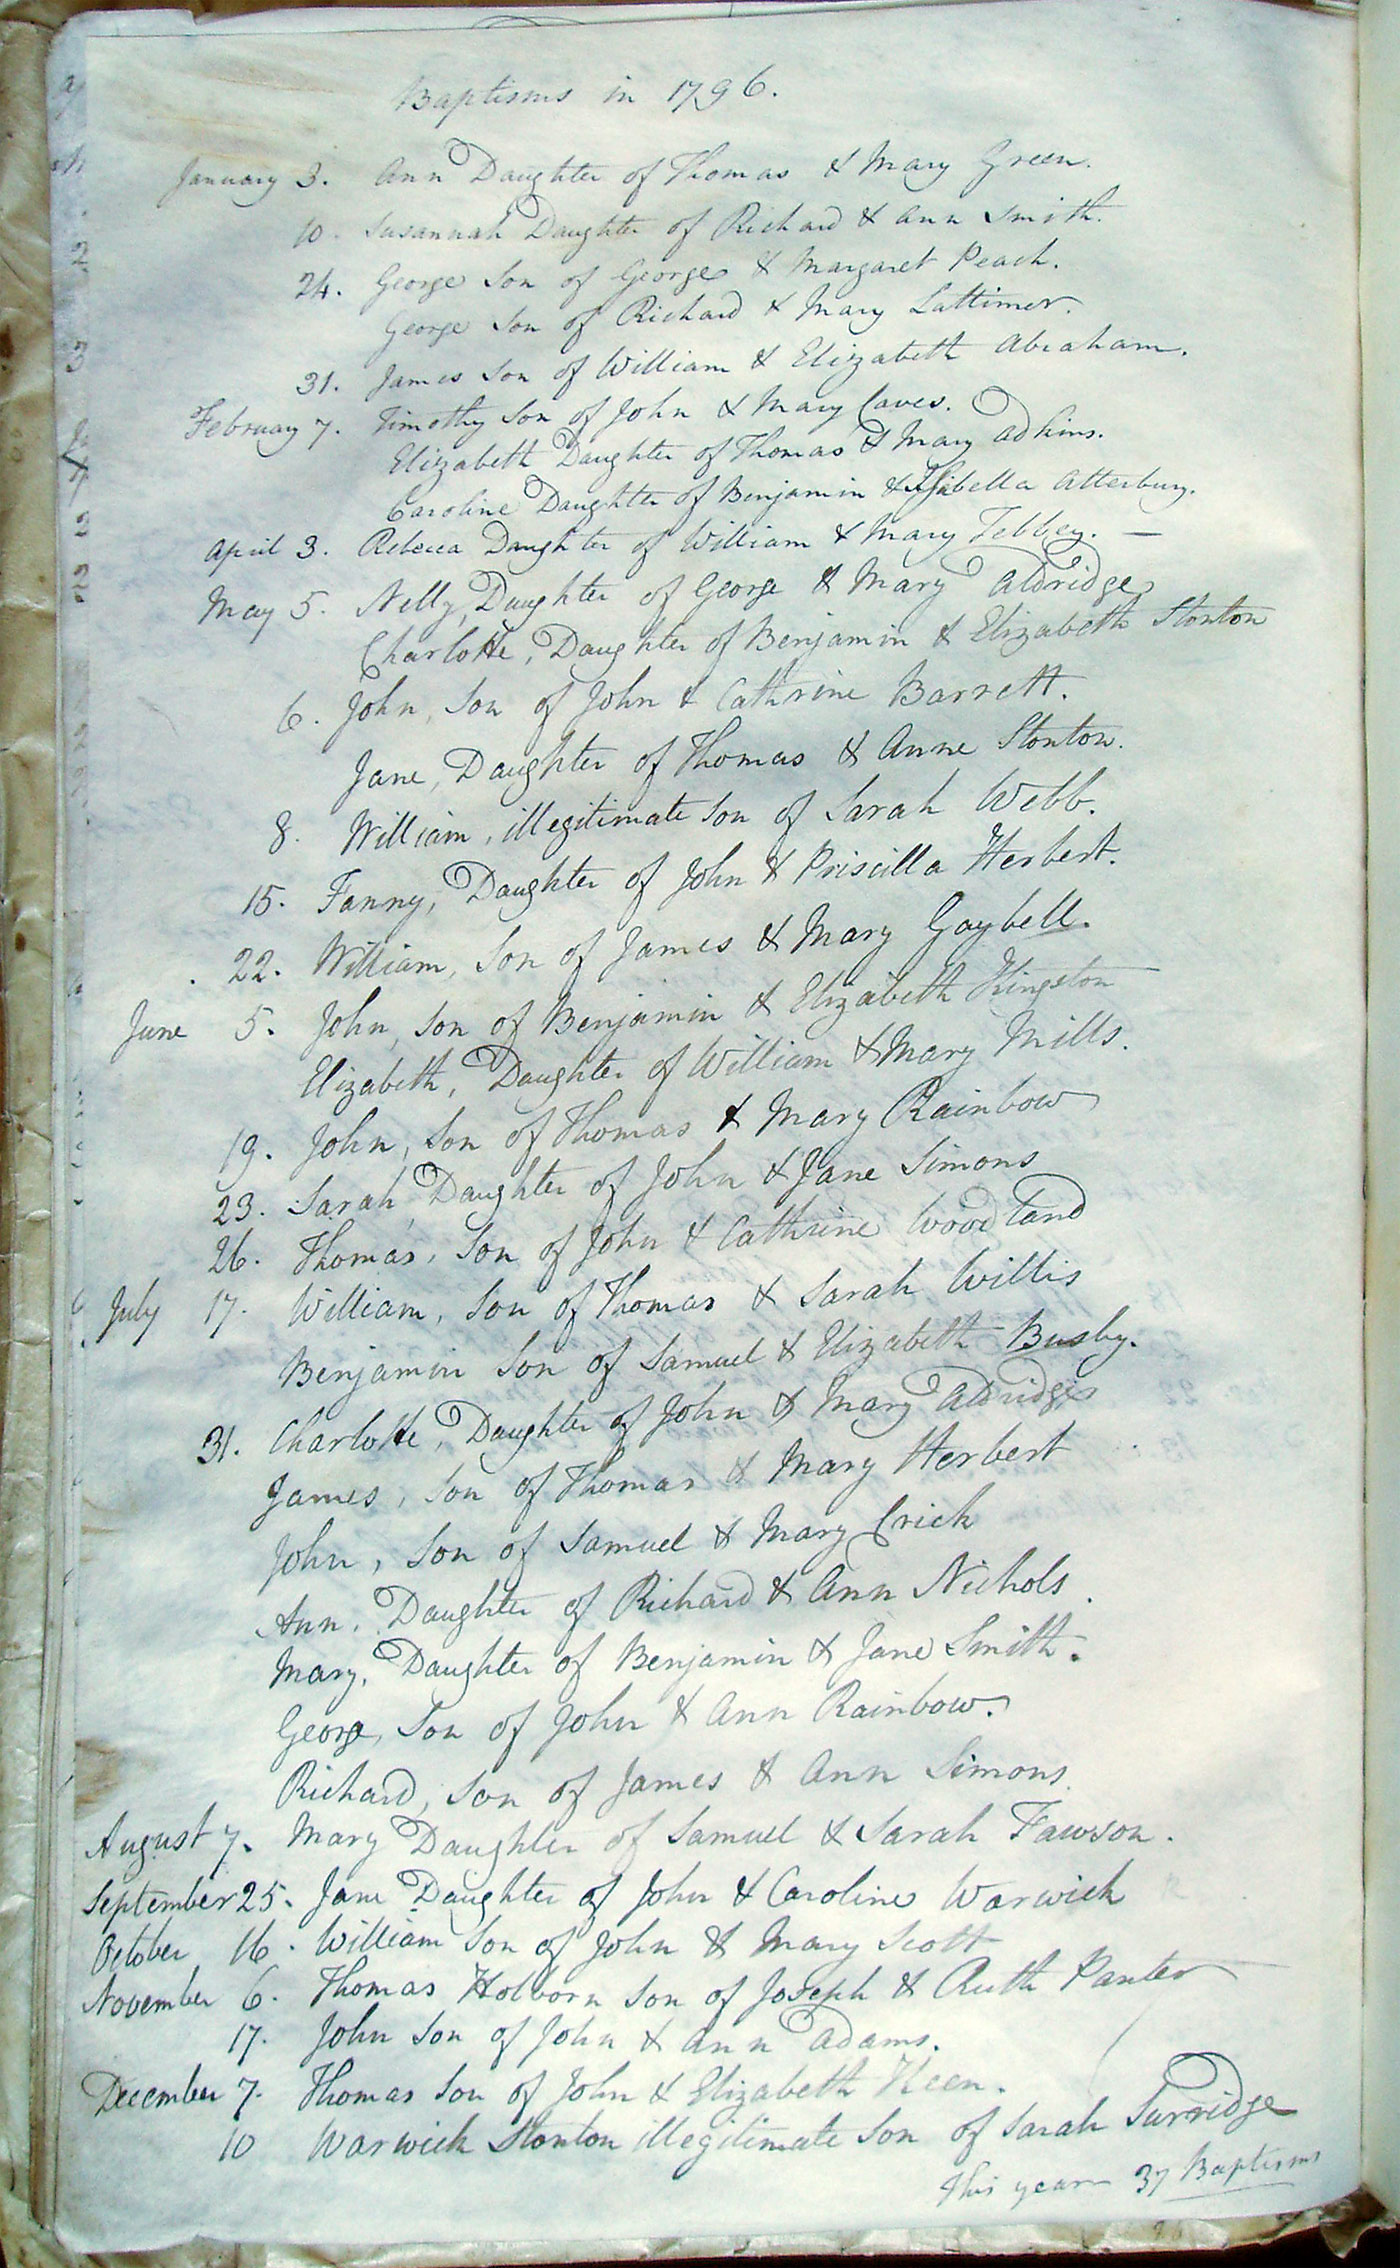 Baptisms in 1796.
January 3. Ann Daughter of Thomas & Mary Green.
10. Susannah Daughter of Richard & Ann Smith.
24. George Son of George & Margaret Peach.
George Son of Richard & Mary Lattimer.
31. James Son of William & Elizabeth Abraham.
February 7. Timothy Son of John & Mary Caves.
Elizabeth Daughter of Thomas & Mary Adkins.
Caroline Daughter of Benjamin & Isabella Atterbury.
April 3. Rebecca Daughter of William & Mary Tebbey. —
May 5. Nelly, Daughter of George & Mary Aldridge
Charlotte, Daughter of Benjamin & Elizabeth Stonton
6. John, Son of John & Cathrine Barrett.
Jane, Daughter of Thomas & Anne Stonton.
8. William, illegitimate Son of Sarah Webb.
15. Fanny, Daughter of John & Priscilla Herbert.
22. William, Son of James & Mary Gaybell.
June 5. John, Son of Benjamin & Elizabeth Kingston
Elizabeth, Daughter of William & Mary Mills.
19. John, Son of Thomas & Mary Rainbow
23. Sarah, Daughter of John & Jane Simons
26. Thomas, Son of John & Cathrine Woodland
July 17. William, Son of Thomas & Sarah Willis
Benjamin Son of Samuel & Elizabeth Busby.
31. Charlotte, Daughter of John & Mary Aldridge
James, Son of Thomas & Mary Herbert
John, Son of Samuel & Mary Crick
Ann, Daughter of Richard & Ann Nichols.
Mary, Daughter of Benjamin & Jane Smith.
George, Son of John & Ann Rainbow.
Richard, Son of James & Ann Simons.
August 7. Mary Daughter of Samuel & Sarah Fawson.
September 25. Jane Daughter of John & Caroline Warwick
October 16. William Son of John & Mary Scott
November 6. Thomas Holborn Son of Joseph & Ruth Panter
17. John Son of John & Ann Adams.
December 7. Thomas Son of John & Elizabeth Keen.
10 Warwick Stonton illegitimate Son of Sarah Surridge
This year 37 Baptisms